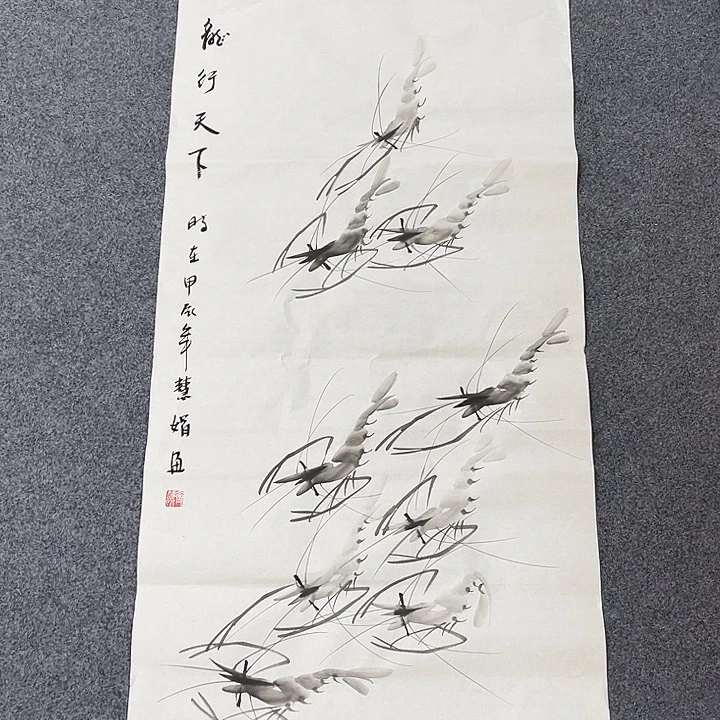 龍行天下
時在甲辰年慧娟画